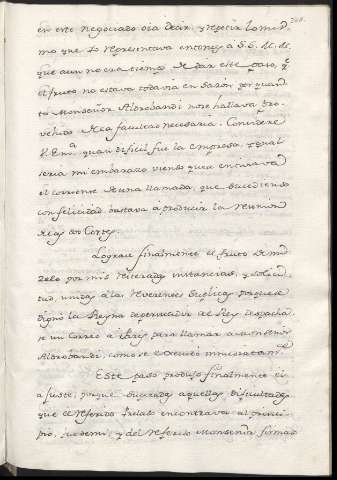 en este negociado oia decir, y repetir lo mis-
mo que Yo representava entonces à S.S. M.M.
que aun no era tiempo de dar este paso, q.e
el fruto no estava todavia en sazon por quan-
to Monseñor Aldrobandi no se hallava pro-
veido de la facultad necesaria. Considere
V. Em.a quan dificil fue la empresa, y qual
seria mi embarazo viendo que en
el corriente de una llamada, que sucediendo
con felicidad bastava à producir la reunion
de las dos Cortes.
Logrose finalmente el fruto de mi
zelo por mis reiteradas instancias, y solicí-
tud, unidas à las reverentes suplicas porque se
dignò la Reyna de persuader al Rey despacha-
se un Correo à Paris para llamar a Monseñor
Aldrobandi, como se executò inmediatam.te
Este paso produjo finalmente el
ajuste, porque superadas aquellas dificultades
que el referido Prelado encontrava al princi-
pio, se demi, y del referido Monseñor firmado